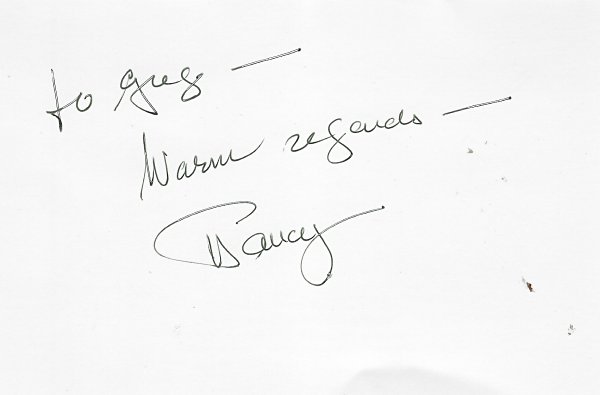 to Greg —
Warm regards —
Nancy